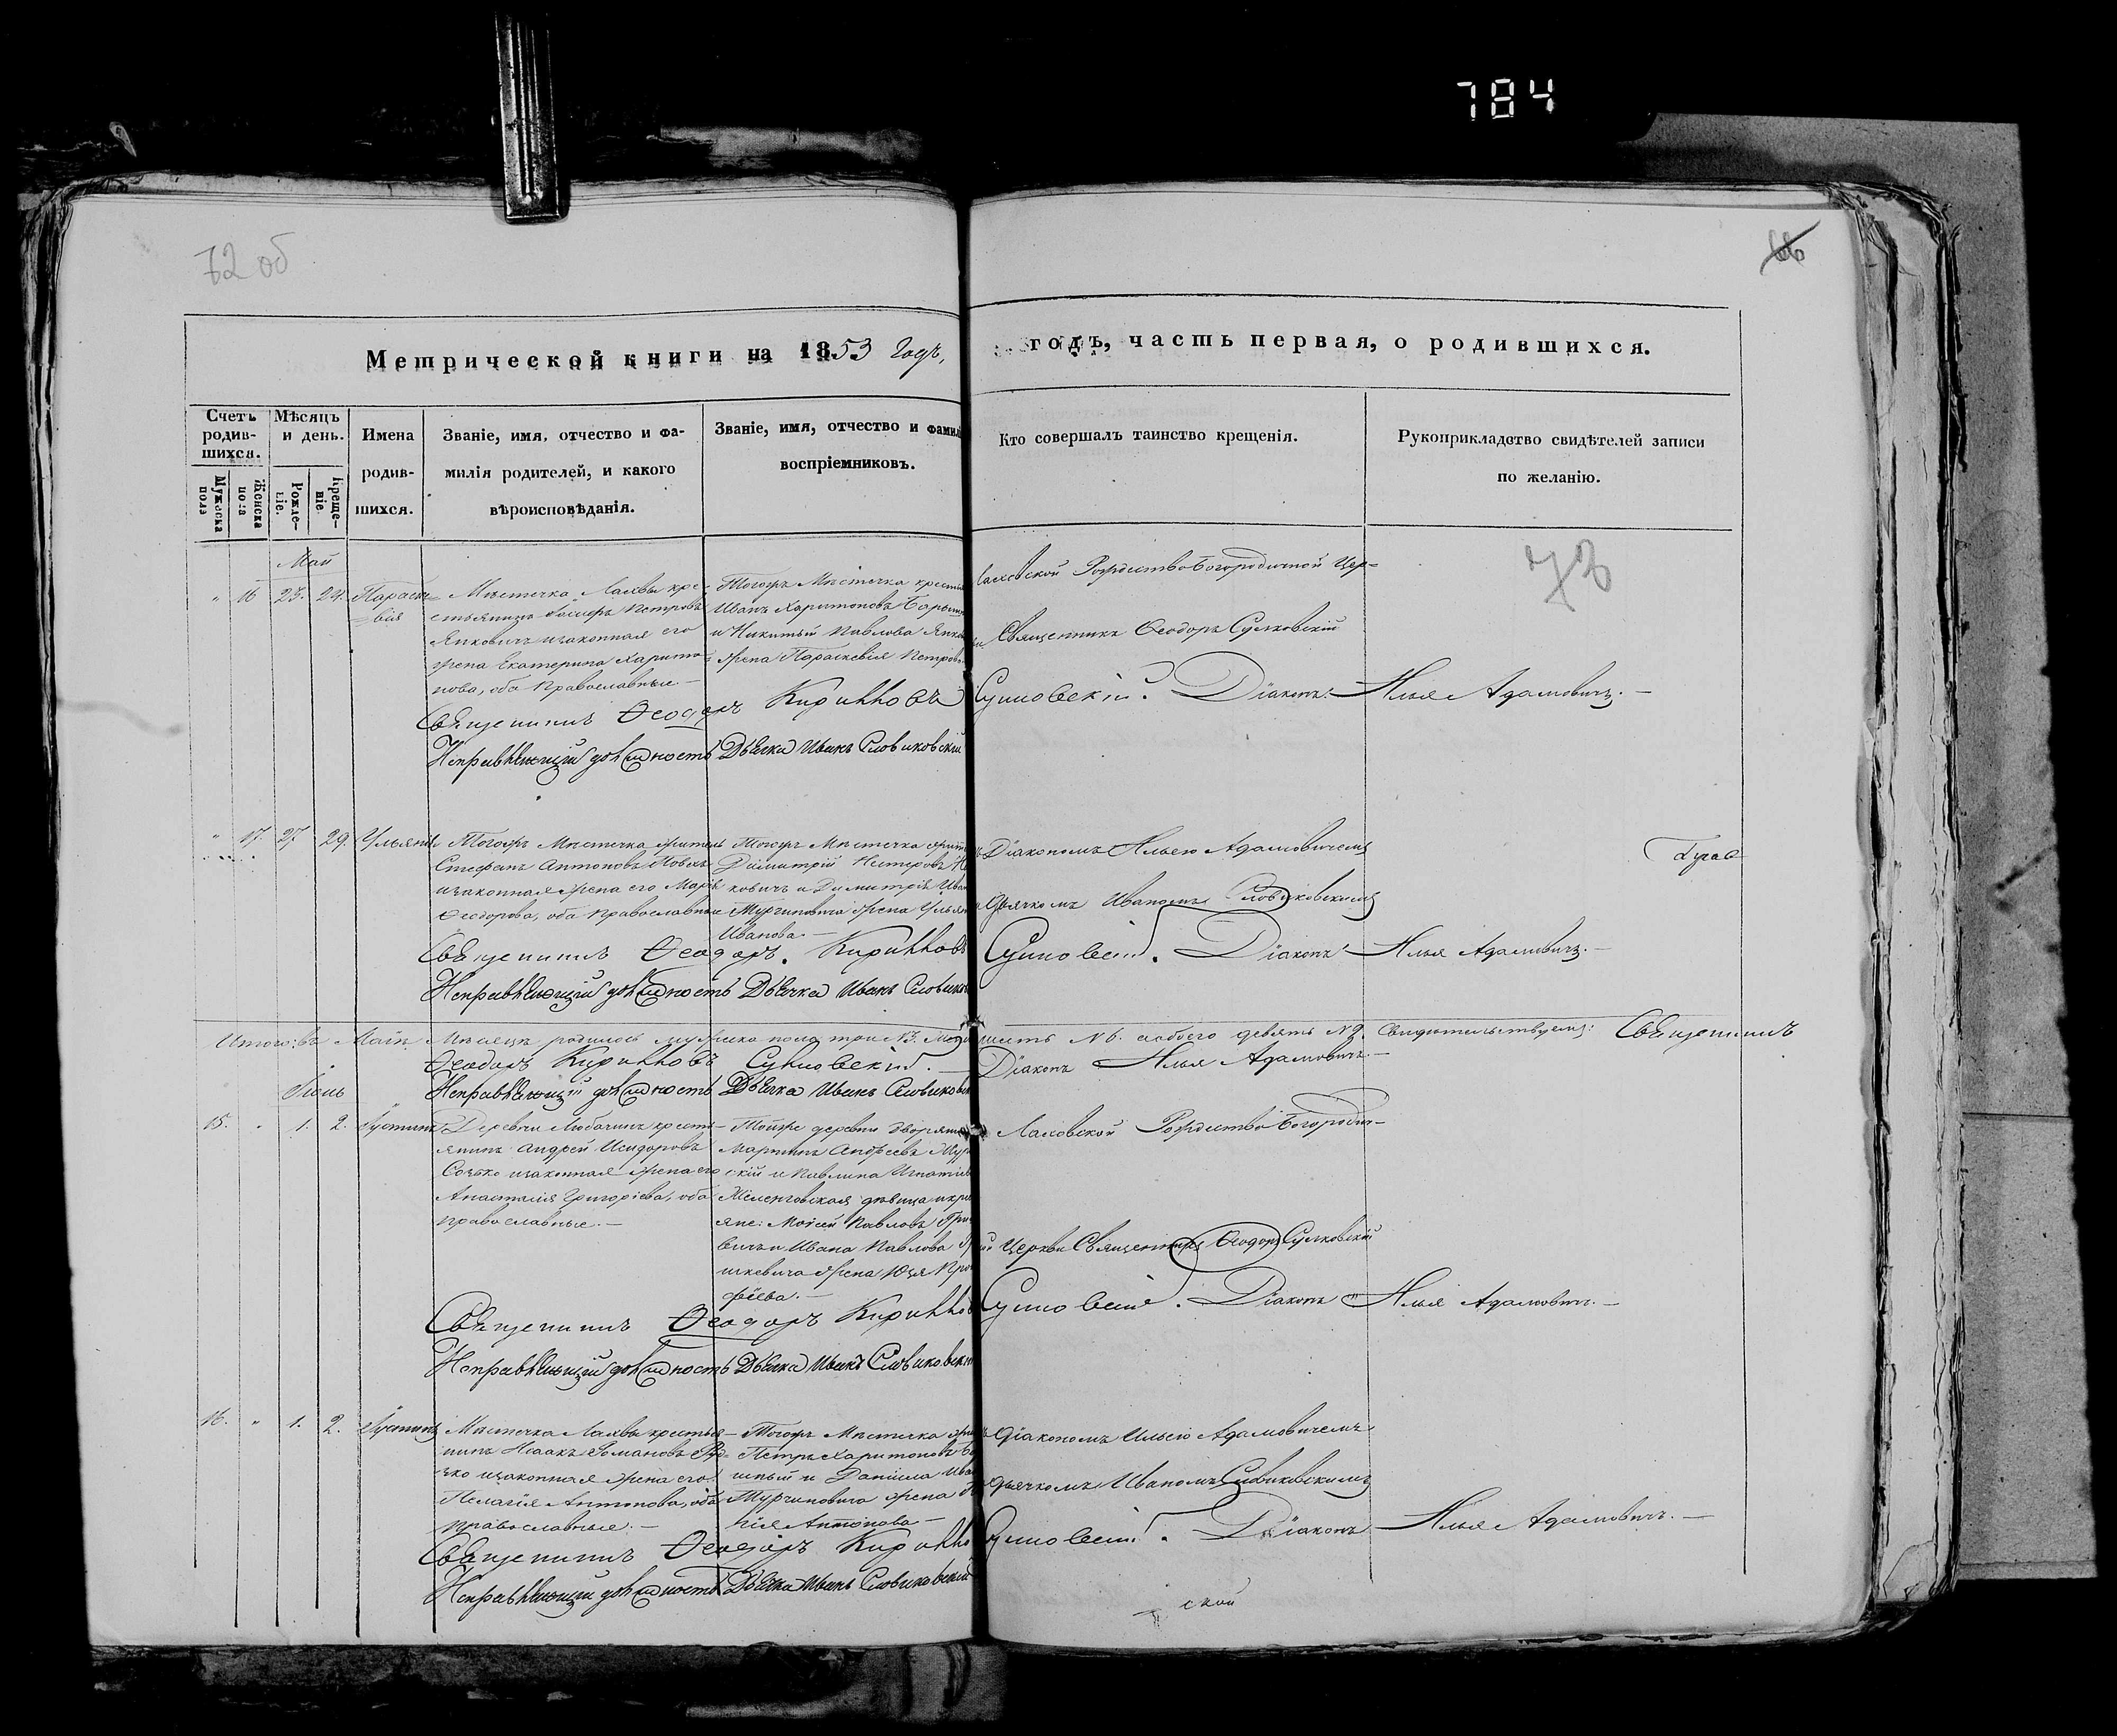 784
72 об
66
Метрической книги на 1853 годъ,
годъ, часть первая, о родившихся.
Счетъ родив-шихся.
Мужеска пола
Женска пола
Мѣсяцъ и день.
Рожде-ніе.
Креще-ніе
Имена
родив-
шихся.
Званіе, имя, отчество и фа-
милія родителей, и какого
вѣроисповѣданія.
Званіе, имя, отчество и фамилі
воспріемниковъ.
Кто совершалъ таинство крещенія.
Рукоприкладство свидѣтелей записи
по желанію.
73
Май
" 16 23. 24. Параске=
=вія
Мѣстечка Лахвы кре-
стьянинъ Іосифъ Петровъ
Янковичъ изаконная его
жена Екатерина Харито-
нова, оба православные.—
Тогожъ Мѣстечка крестья
Иванъ Харитоновъ
и Никитый Павлова Янко
жена Параскевія Петрова
Лаховской Рождество Богородичной Цер=
Священникъ Ѳеодоръ Сулковскій
Священникъ Ѳеодоръ Кирилловъ Сулковскій. Діаконъ Илья Адамовичъ.—
Исправляющій должность Дьячка Иванъ Словиковскій
" 17. 27 29. Ульянія
Тогожъ Мѣстечка житель
Стефанъ Антоновъ
изаконная жена его Марія
Ѳеодорова, оба православные
Тогожъ Мѣстечка жите
Димитрій Нестеровъ
ковичъ и Димитрія Иван
Турчиновича жена Ульян
Иванова.—
Діакономъ Ильею Адамовичемъ
Дьячкомъ Иваномъ Словиковскимъ
Священникъ Ѳеодоръ Кирилловъ Сулковскій. Діаконъ Илья Адамовичъ.—
Исправляющій должность Дьячка Иванъ Словиков
Итого: въ Маѣ Мѣсяцѣ родилось мужеска пола три №3. шесть №6. аобоего девять №9. Свидѣтельствуемъ: Священникъ
Ѳеодоръ Кирилловъ Сулковскій.— Діаконъ Илья Адамовичъ.—
Исправляющій должность Дьячка Иванъ Словиковск
Іюнь
15. " 1. 2. Іустинъ
Деревни Любачинъ крестъ-
янинъ Андрей Исидоровъ
Созько изаконная жена его
Анастасія Григоріева, оба
православные.—
Тойже деревни дворяни
Мартинъ Андреевъ
скій и Павлина Игнатіев
дѣвица икре
яне: Моисей Павловъ
вичъ и Ивана Павлова
шкевича жена Юзя Про
фіева.—
Лаховской Рождество Богороди-
Церкви Священникъ Ѳеодоръ Сулковскій
Священникъ Ѳеодоръ Кириллов Сулковскій. Діаконъ Илья Адамовичъ.—
Исправляющій должность Дьячка Иванъ Словиковскі
16. " 1. 2. Іустинъ
Мѣстечка Лахвы крестья-
нинъ Исаакъ Романовъ
изаконная жена его
Пелагія Антонова, оба
православные.—
Тогожъ Мѣстечка
Петръ Харитоновъ
и Даніила Ива
Турчиновича жена
Антонова—
Діакономъ Ильею Адамовичемъ
Дьячкомъ Иваномъ Словиковскимъ
Священникъ Ѳеодоръ Кирилло Сулковскій. Діаконъ Илья Адамовичъ.—
Исправляющій должность Дьячка Иванъ Словиковскій
ской